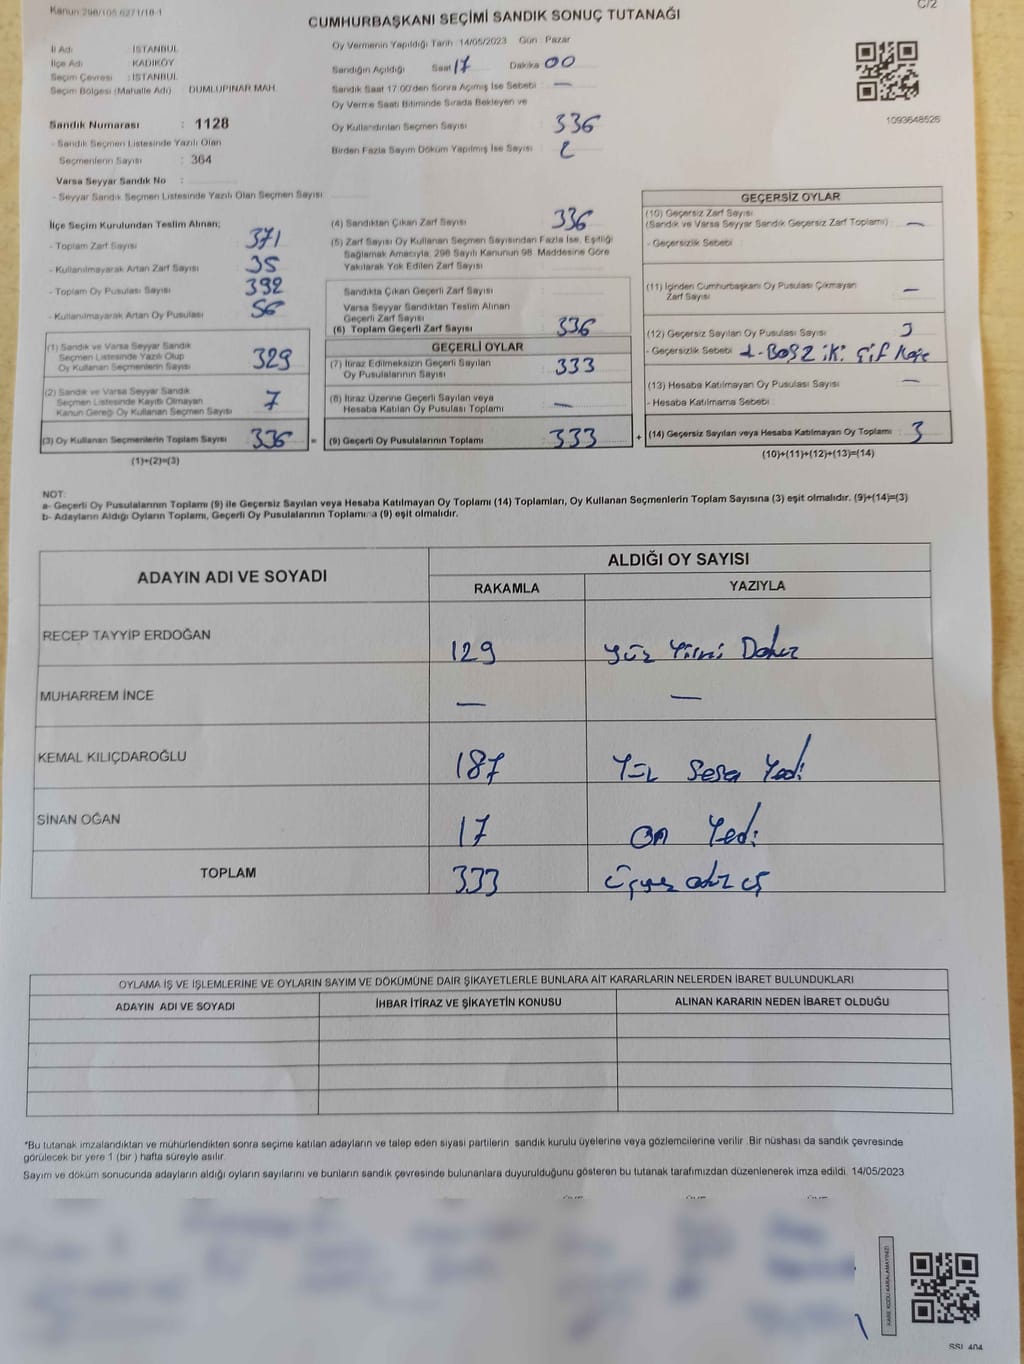 Kanun 298/105 6271/18-1
C/2
CUMHURBAŞKANI SEÇİMİ SANDIK SONUÇ TUTANAĞI
İl Adı : İSTANBUL
İlçe Adı : KADIKÖY
Seçim Çevresi : İSTANBUL
Seçim Bölgesi (Mahalle Adı) : DUMLUPINAR MAH.
Sandık Numarası : 1128
- Sandık Seçmen Listesinde Yazılı Olan
Seçmenlerin Sayısı : 364
Varsa Seyyar Sandık No :
- Seyyar Sandık Seçmen Listesinde Yazılı Olan Seçmen Sayısı
Oy Vermenin Yapıldığı Tarih :14/05/2023 Gün : Pazar
Sandığın Açıldığı Saat 17 Dakika 00
Sandık Saat 17.00'den Sonra Açılmış İse Sebebi : —
Oy Verme Saati Bitiminde Sırada Bekleyen ve
Oy Kullandırılan Seçmen Sayısı : 336
Birden Fazla Sayım Döküm Yapılmış İse Sayısı :
1093648526
İlçe Seçim Kurulundan Teslim Alınan;
- Toplam Zarf Sayısı : 371
- Kullanılmayarak Artan Zarf Sayısı : 35
- Toplam Oy Pusulası Sayısı : 392
- Kullanılmayarak Artan Oy Pusulası : 56
(1) Sandık ve Varsa Seyyar Sandık
Seçmen Listesinde Yazılı Olup
Oy Kullanan Seçmenlerin Sayısı : 329
(2) Sandık ve Varsa Seyyar Sandık
Seçmen Listesinde Kayıtlı Olmayan
Kanun Gereği Oy Kullanan Seçmen Sayısı : 7
(3) Oy Kullanan Seçmenlerin Toplam Sayısı : 336
(1)+(2)=(3)
(4) Sandıktan Çıkan Zarf Sayısı : 336
(5) Zarf Sayısı Oy Kullanan Seçmen Sayısından Fazla İse, Eşitliği
Sağlamak Amacıyla; 298 Sayılı Kanunun 98. Maddesine Göre
Yakılarak Yok Edilen Zarf Sayısı :
Sandıkta Çıkan Geçerli Zarf Sayısı :
Varsa Seyyar Sandıktan Teslim Alınan
Geçerli Zarf Sayısı :
(6) Toplam Geçerli Zarf Sayısı : 336
GEÇERLİ OYLAR
(7) İtiraz Edilmeksizin Geçerli Sayılan
Oy Pusulalarının Sayısı : 333
(8) İtiraz Üzerine Geçerli Sayılan veya
Hesaba Katılan Oy Pusulası Toplamı : —
= (9) Geçerli Oy Pusulalarının Toplamı : 333
GEÇERSİZ OYLAR
(10) Geçersiz Zarf Sayısı
(Sandık ve Varsa Seyyar Sandık Geçersiz Zarf Toplamı) : —
- Geçersizlik Sebebi :
(11) İçinden Cumhurbaşkanı Oy Pusulası Çıkmayan
Zarf Sayısı : —
(12) Geçersiz Sayılan Oy Pusulası Sayısı : 3
- Geçersizlik Sebebi
(13) Hesaba Katılmayan Oy Pusulası Sayısı : —
- Hesaba Katılmama Sebebi :
+ (14) Geçersiz Sayılan veya Hesaba Katılmayan Oy Toplamı : 3
(10)+(11)+(12)+(13)=(14)
NOT:
a- Geçerli Oy Pusulalarının Toplamı (9) ile Geçersiz Sayılan veya Hesaba Katılmayan Oy Toplamı (14) Toplamları, Oy Kullanan Seçmenlerin Toplam Sayısına (3) eşit olmalıdır. (9)+(14)=(3)
b- Adayların Aldığı Oyların Toplamı, Geçerli Oy Pusulalarının Toplamına (9) eşit olmalıdır.
ADAYIN ADI VE SOYADI
ALDIĞI OY SAYISI
RAKAMLA YAZIYLA
RECEP TAYYİP ERDOĞAN 129 Yüz Yirmi Dokuz
MUHARREM İNCE — —
KEMAL KILIÇDAROĞLU 187 Yüz Seksen Yedi
SİNAN OĞAN 17 On Yedi
TOPLAM 333 Üçyüz otuz üç
OYLAMA İŞ VE İŞLEMLERİNE VE OYLARIN SAYIM VE DÖKÜMÜNE DAİR ŞİKAYETLERLE BUNLARA AİT KARARLARIN NELERDEN İBARET BULUNDUKLARI
ADAYIN ADI VE SOYADI İHBAR İTİRAZ VE ŞİKAYETİN KONUSU ALINAN KARARIN NEDEN İBARET OLDUĞU
*Bu tutanak imzalandıktan ve mühürlendikten sonra seçime katılan adayların ve talep eden siyasi partilerin sandık kurulu üyelerine veya gözlemcilerine verilir. Bir nüshası da sandık çevresinde
görülecek bir yere 1 (bir ) hafta süreyle asılır.
Sayım ve döküm sonucunda adayların aldığı oyların sayılarını ve bunların sandık çevresinde bulunanlara duyurulduğunu gösteren bu tutanak tarafımızdan düzenlenerek imza edildi. 14/05/2023
KARE KODU KARALAMAYINIZ!